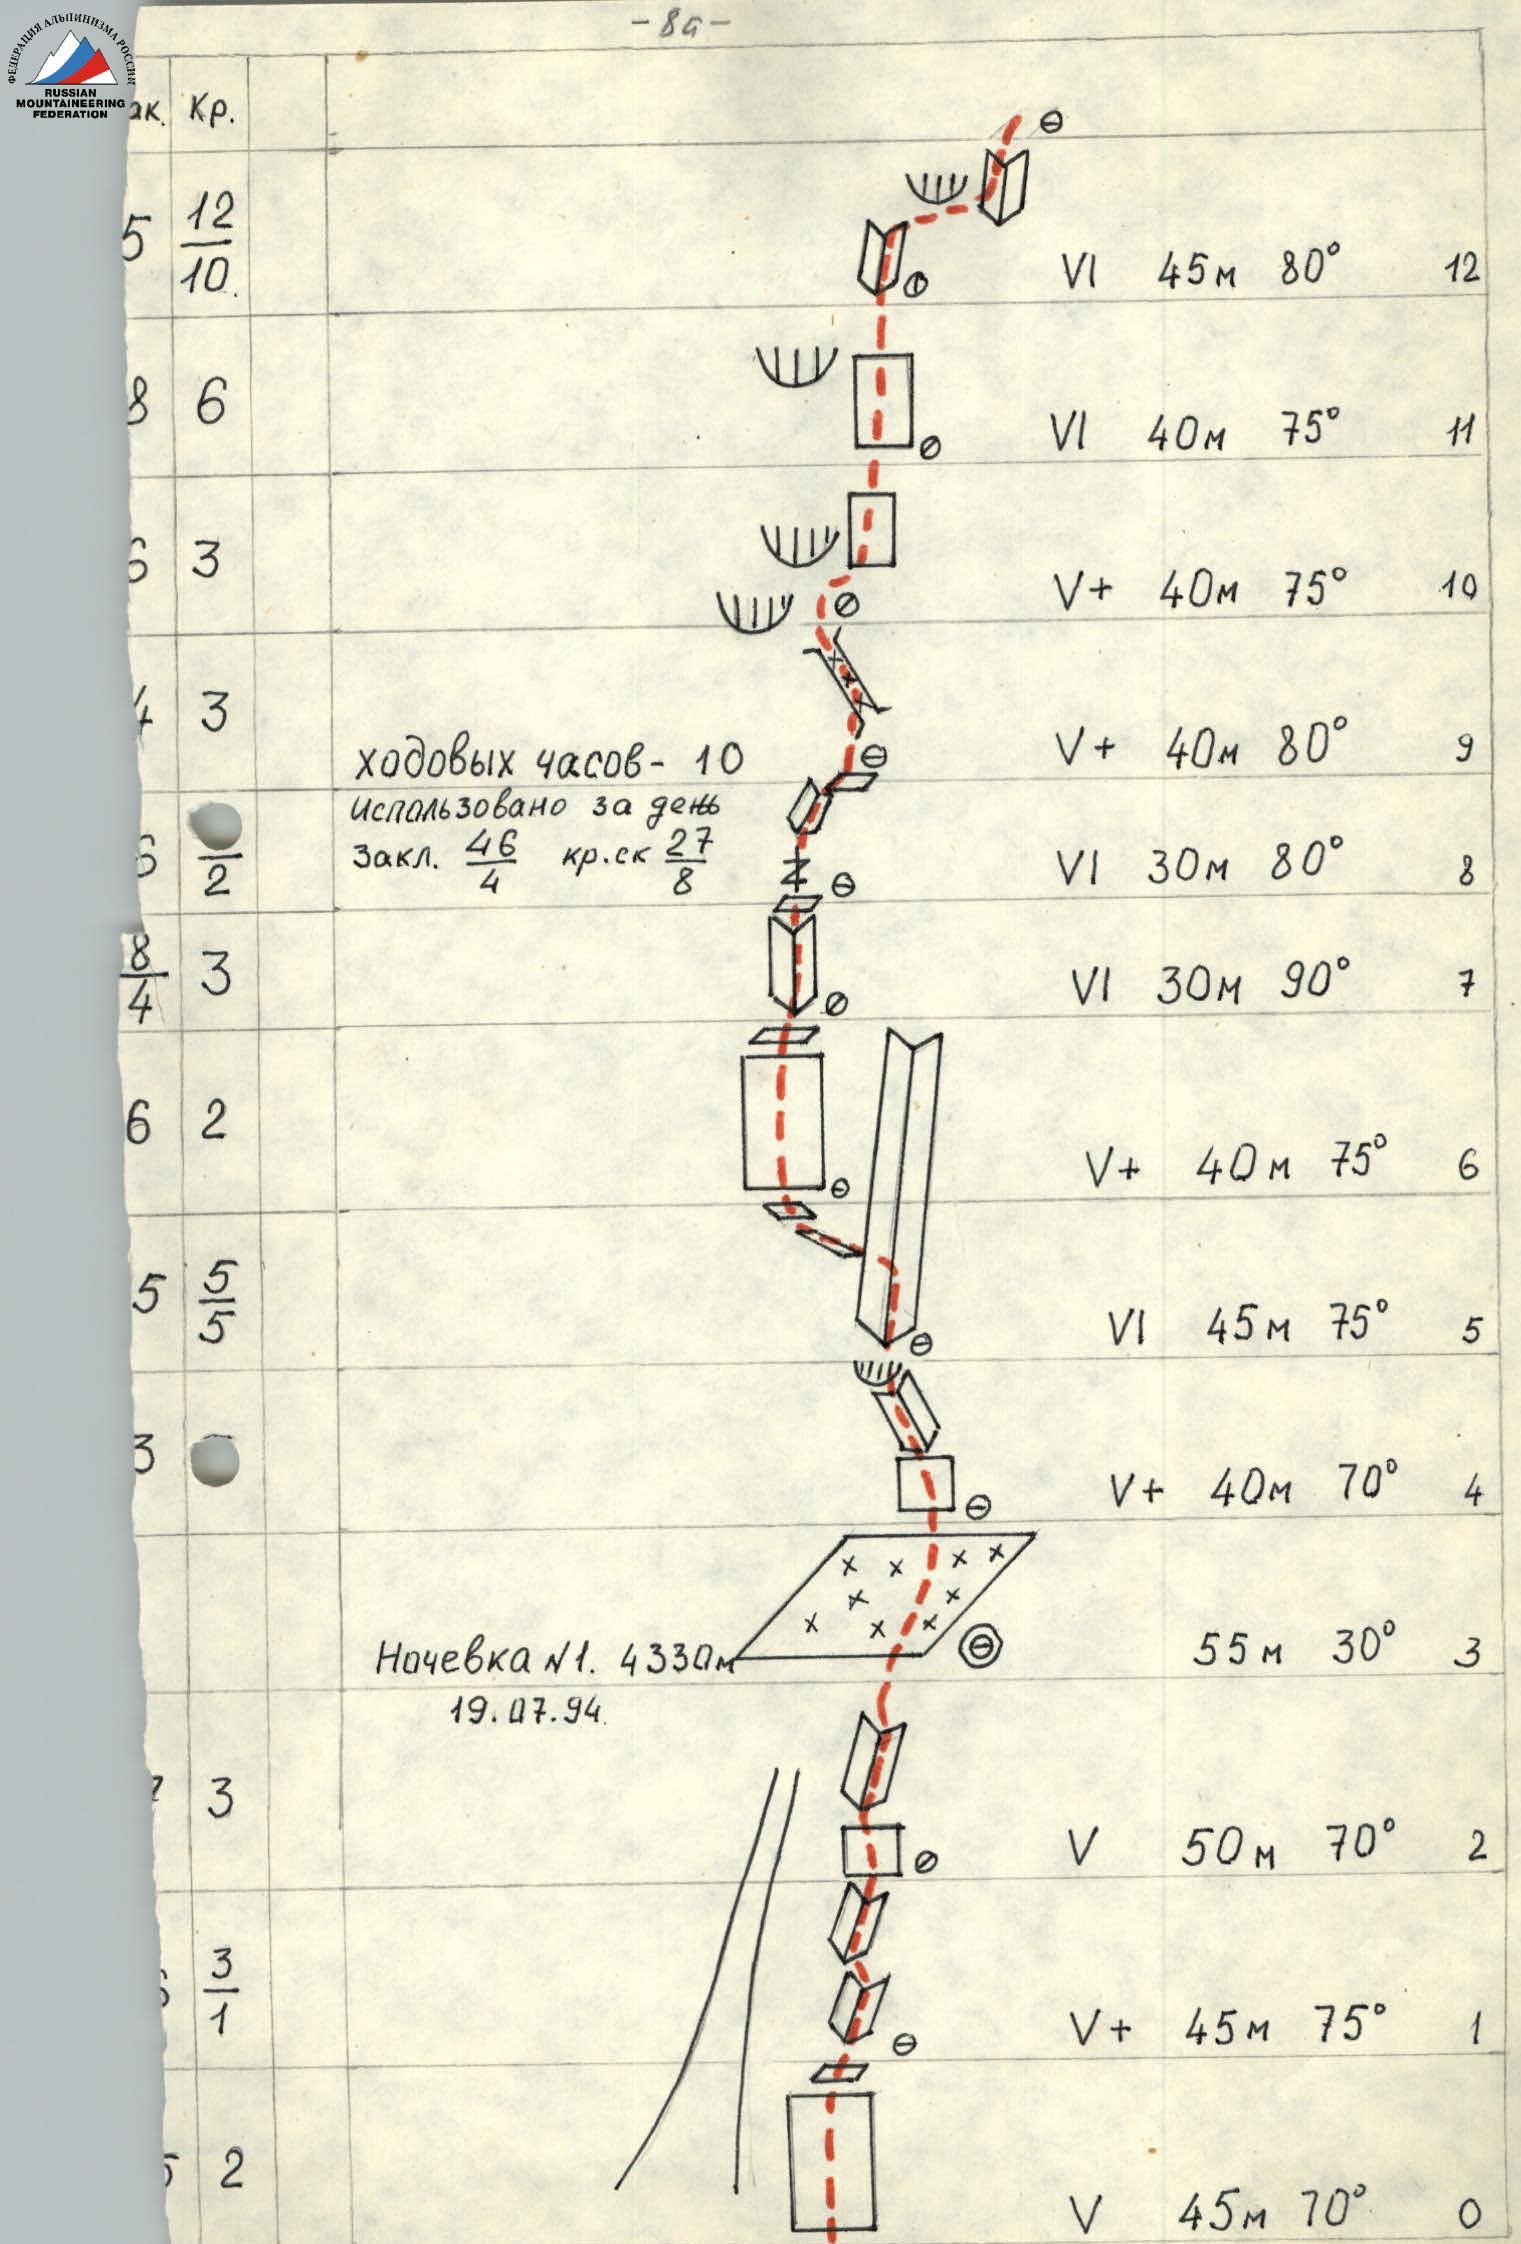 -8а-
ФЕДЕРАЦИЯ АЛЬПИНИЗМА РОССИИ
RUSSIAN
MOUNTAINEERING
FEDERATION
ак. Кр.
5 12/10 VI 45м 80° 12
8 6 VI 40м 75° 11
6 3 V+ 40м 75° 10
4 3 V+ 40м 80° 9
ходовых часов- 10
использовано за день
закл. 46/4 кр.ск 27/8
6 /2 VI 30м 80° 8
8/4 3 VI 30м 90° 7
6 2 V+ 40м 75° 6
5 5/5 VI 45м 75° 5
3 V+ 40м 70° 4
Ночевка N1. 4330м 55м 30° 3
19.07.94.
3 V 50м 70° 2
3/1 V+ 45м 75° 1
2 V 45м 70° 0